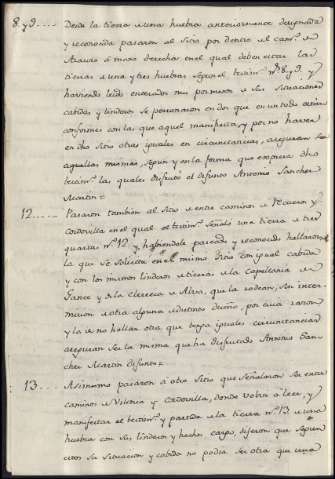 8. y 9.... Desde la tierra de una huebra anteriormente designada
y reconocida pasaron al Sitio por dentro del cam.º de
Azaras a mano derecha en el qual deben estar las
tierras de una y tres huebras segun el testim.º n.º 8. y 9. y
haviendo leido enterados por menor de sus situaciones
cabida y linderos se persuadieron en dos que en un todo están
conformes con las que aquel manifiesta, y por no haver
en dho Sitio otras iguales en circunstancias, aseguran ser
aquellas mismas segun y en la forma que expresa dho
testim.º las quales disfrutó el difunto Antonio Sanchez
Martin=
12..... Pasaron tambien al Sitio de entre caminos de Pedraza y
Cordovilla en el qual el testim.º señala una tierra de tres
quartas n.º 12 y haviendola paseado y reconocido hallaron
la que se solicita en el mismo Sitio con igual cabida
y con los mismos linderos de tierras de la Capellania de
Garce y de la Clerecia de Alva, que la rodean, sin inter-
mision de otra alguna de distinto dueño, por cuia razon
y la de no hallar otra que tenga iguales circunstancias
aseguran ser la misma que ha disfrutado Antonio San-
chez Martin difunto=
13.... Asimismo pasaron a otro Sitio que señalaron de entre
caminos de Vitoria y Cordovilla, donde volvi a leer, y
manifestar el testim.º y partida de la tierra n.º 13 de una
huebra con sus linderos y hechos cargo, dijeron que segun
estos su situacion y cabida no podia ser otra que una